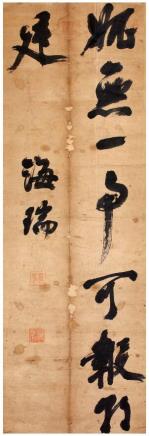 媿無一事可報朝
廷
海瑞